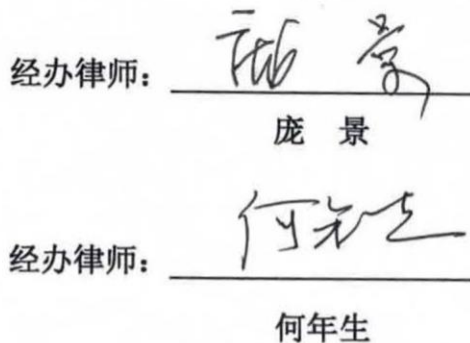 经办律师：庞景
庞 景
经办律师：何年生
何年生